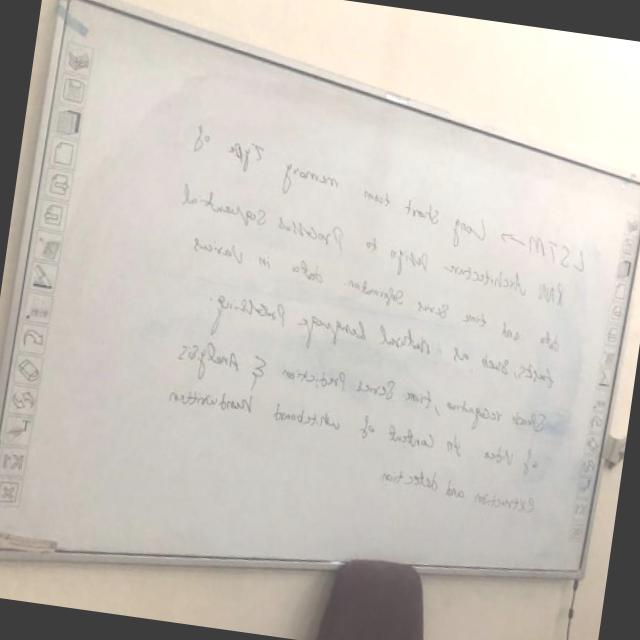 LSTM → Long short term memory Type of
RNN Architecture Design to Process Sequential
data and time Series Information data in Various
tasks, Such as, Natural Language Processing
Speech recognition, time Series Prediction & Analysis
of Video In Content of whiteboard Handwritten
Extraction and detection